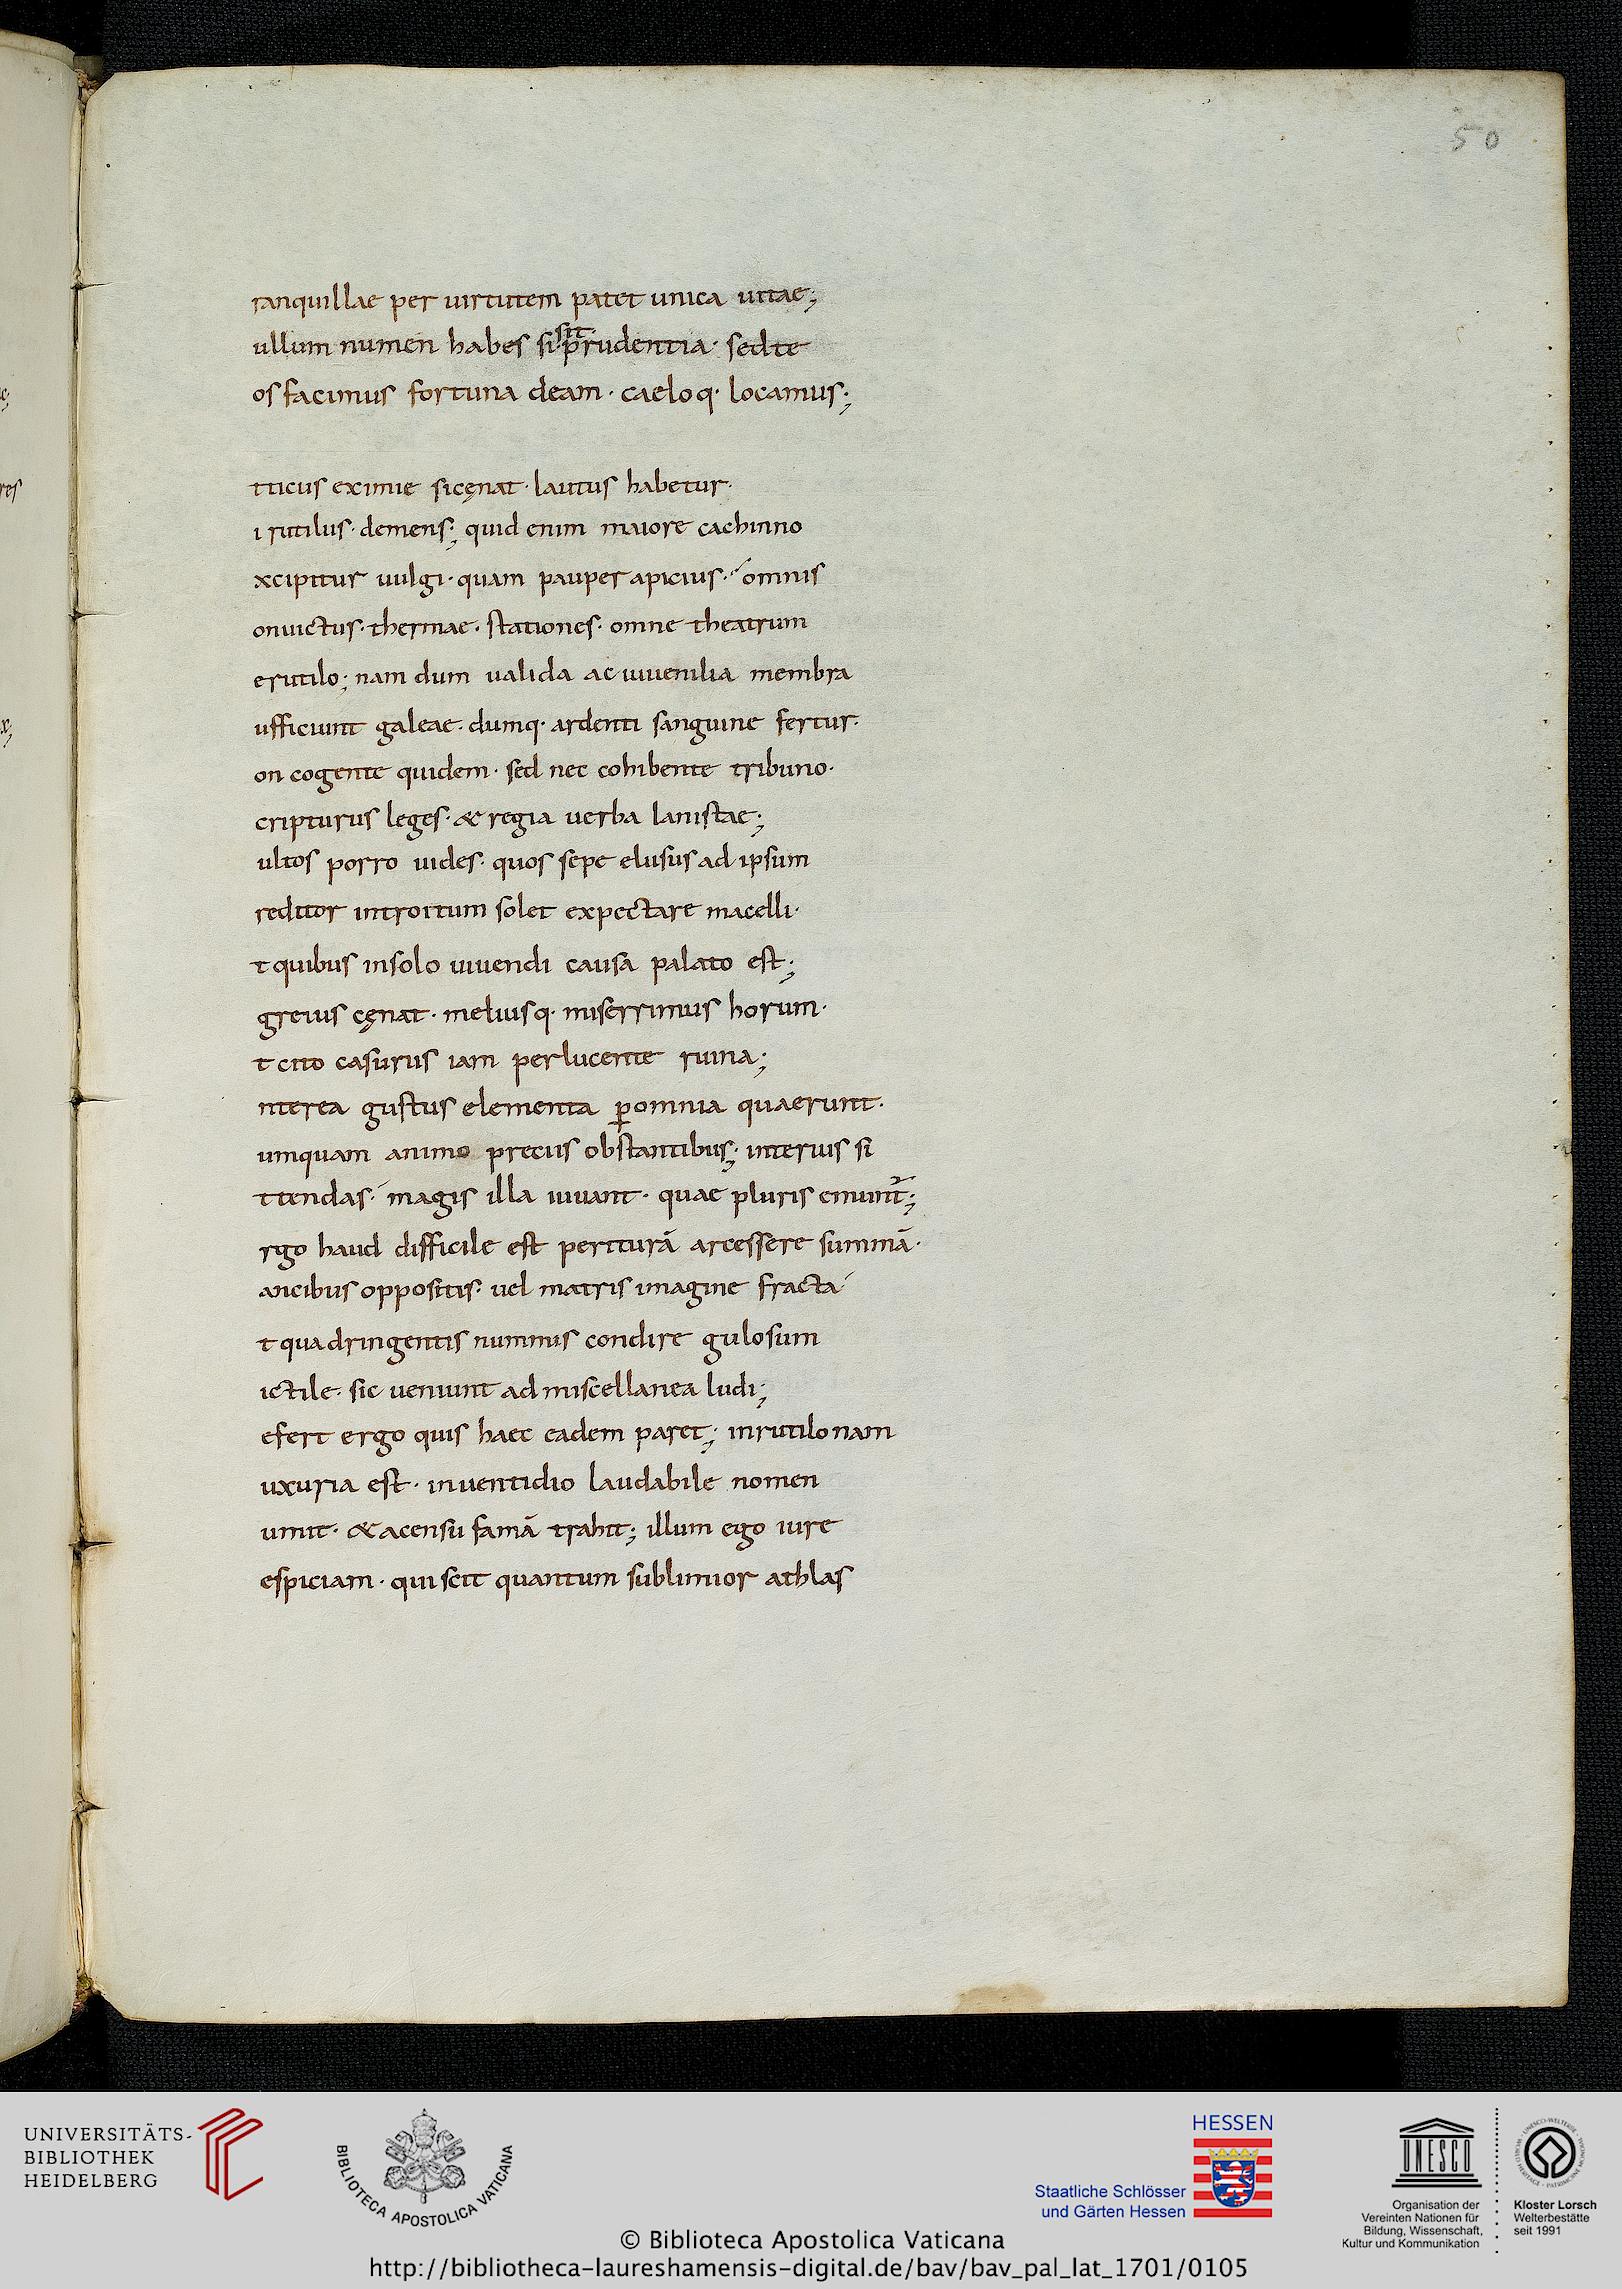 50
ranquillae per uirtutem patet unica uitae;
sit
ullum numen habes si prudentia· sed te
os facimus fortuna deam· caeloq· locamus;
tticus eximie si cęnat· lautus habetur·
i rutilus· demens; quid enim maiore cachinno
xcipitur uulgi· quam pauper apicius· omnis
onuictus· thermae· stationes· omne theatrum
e rutilo; nam dum ualida ac iuuenilia membra
ufficiunt galeae· dumq· ardenti sanguine fertur·
on cogente quidem· sed nec cohibente tribuno·
cripturus leges· & regia uerba lanistae;
ultos porro uides· quos sepe elusus ad ipsum
reditor introitum solet expectare macelli·
t quibus in solo uiuendi causa palato est;
greius cęnat· meliusq· miserrimus horum·
t cito casurus iam perlucente ruina;
nterea gustus elementa ꝑ omnia quaerunt·
umquam animo preciis obstantibus; interius si
ttendas· magis illa iuuant· quae pluris emunt᷒;
rgo haud difficile est periturā arcessere summā·
ancibus oppositis· uel matris imagine fracta
t quadringentis nummis condire gulosum
ictile· sic ueniunt ad miscellanea ludi;
efert ergo quis haec eadem paret; in rutilo nam
uxuria est· in uentidio laudabile nomen
umit· & a censu famā trahit; illum ego iure
espiciam· qui scit quantum sublimior athlas
UNIVERSITÄTS-
BIBLIOTHEK
HEIDELBERG
BIBLIOTECA APOSTOLICA VATICANA
HESSEN
Staatliche Schlösser
und Gärten Hessen
UNESCO
Organisation der
Vereinten Nationen für
Bildung, Wissenschaft,
Kultur und Kommunikation
Kloster Lorsch
Welterbestätte
seit 1991
© Biblioteca Apostolica Vaticana
http://bibliotheca-laureshamensis-digital.de/bav/bav_pal_lat_1701/0105